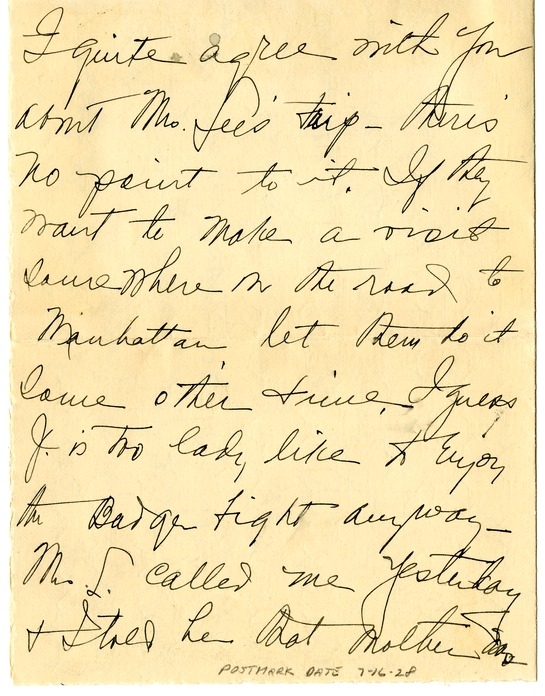 I quite agree with you
about Mrs. Lee's trip - there's
no point to it. If they
want to make a visit
somewhere on the road to
Manhattan let them do it
some other time. I guess
J. is too lady like to enjoy
the Badger fight anyway -
Mrs. L. called me yesterday
+ I told her that mother
POSTMARK DATE 7-16-28